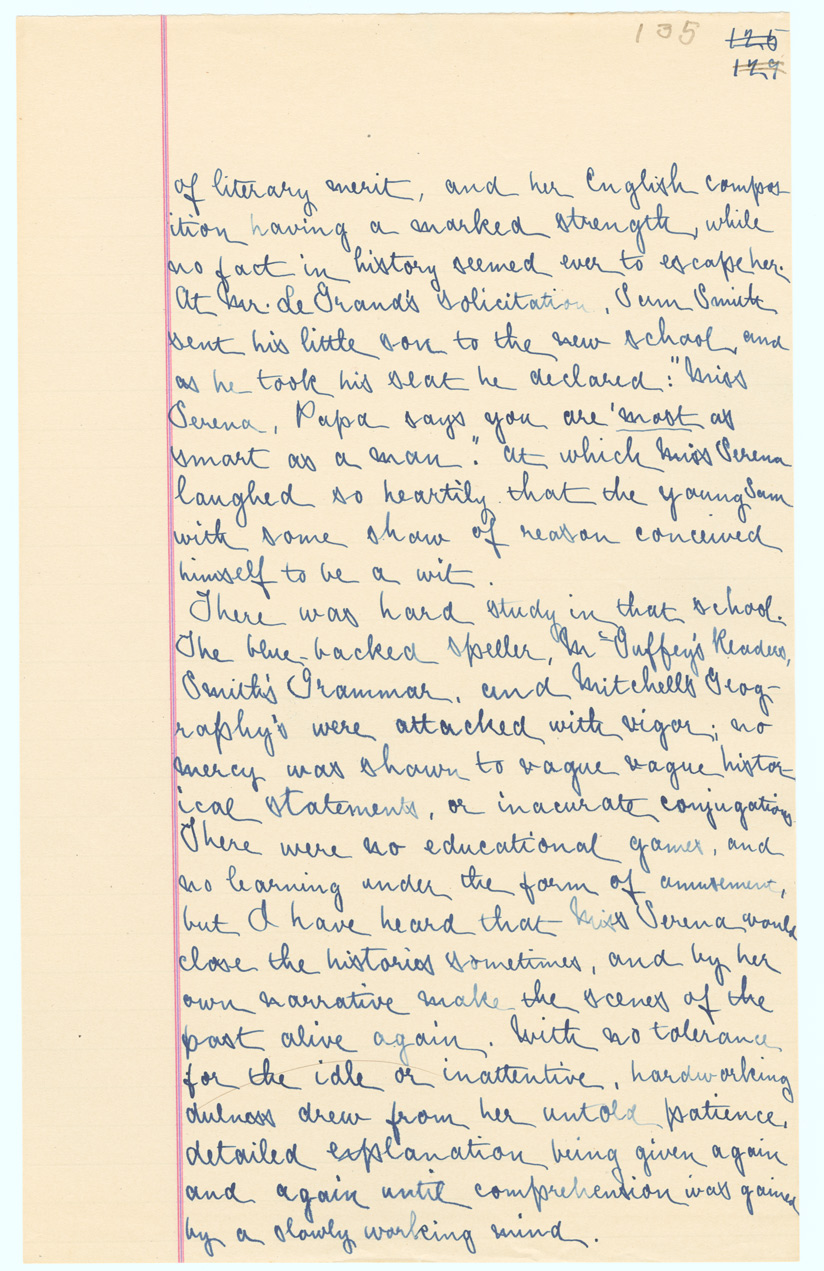 135 125
129
of literary merit, and her English compos-
ition having a marked strength, while
no fact in history seemed ever to escape her.
At Mr. Le Grand's solicitation, Sum Smith
sent his little son to the new school, and
as he took his seat he declared: "Miss
Serena, Papa says you are 'most as
smart as a man". At which Miss Serena
laughed so heartily that the young Sam
with some show of reason conceived
himself to be a wit.
There was hard study in that school.
The blue-backed speller, McGuffey's Readers,
Smith's Grammar, and Mitchell's Geog-
raphy's were attacked with vigor; no
mercy was shown to vague vague histor-
ical statements, or inacurate conjugations.
There were no educational games, and
no learning under the form of amusement,
but I have heard that Miss Serena would
close the histories sometimes, and by her
own narrative make the scenes of the
past alive again. With no tolerance
for the idle or inattentive, hardworking
dulness drew from her untold patience,
detailed explanation being given again
and again until comprehension was gained
by a slowly working mind.